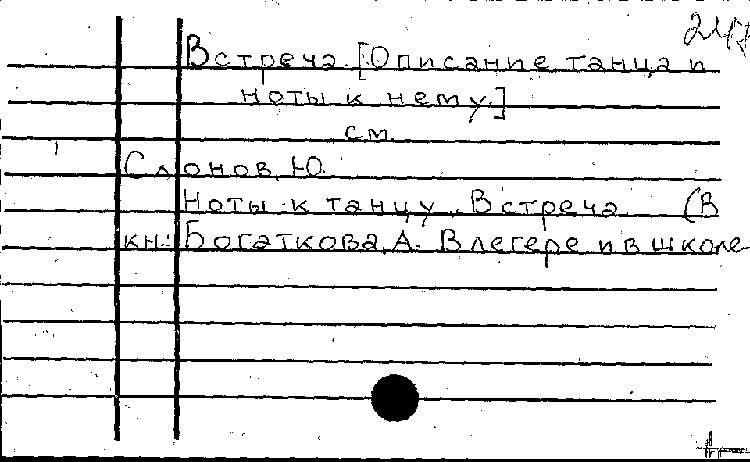 Встреча. [Описание танца и
ноты к нему.]
см.
Слонов, Ю.
Ноты к танцу „Встреча (В
кн.: Богаткова, А. В лагере и в школе